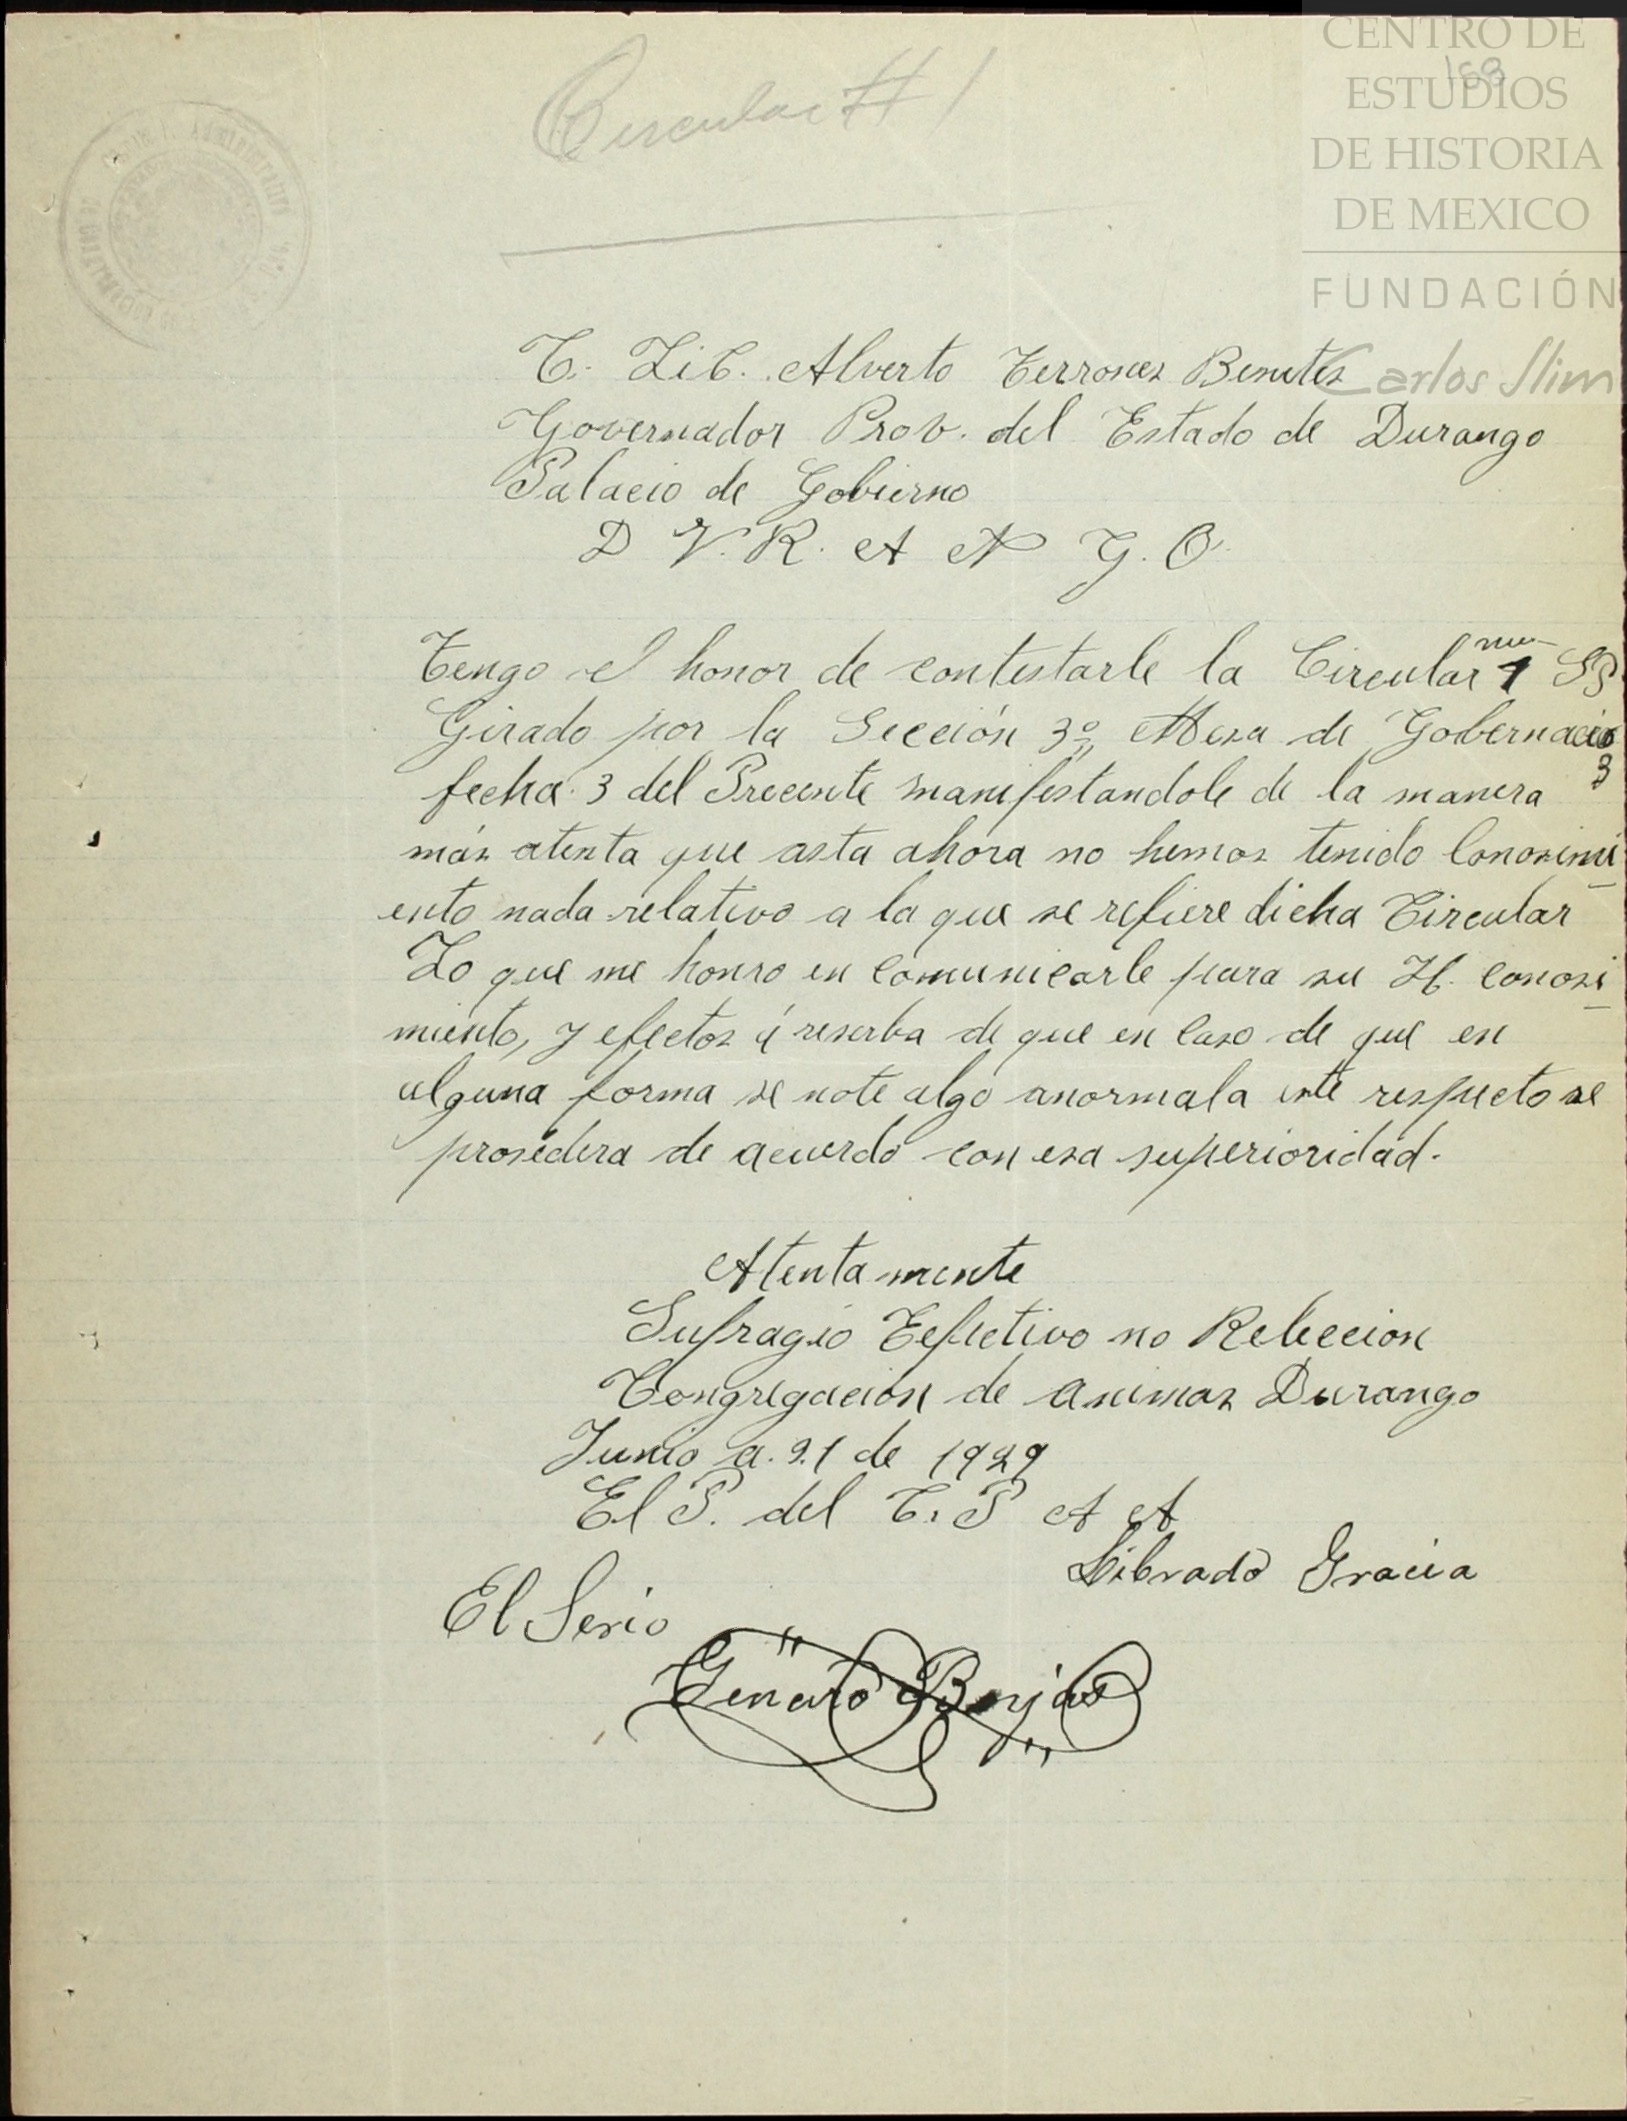 CENTRO DE
ESTUDIOS
DE HISTORIA
DE MEXICO
FUNDACIÓN
Carlos Slim
168
Circular # 1
C. Lic. Alverto Terrones Benites
Governador Prov. del Estado de Durango
Palacio de Gobierno
D V. R. A N G. O.
Tengo el honor de contestarle la Circular num 1 SS
Girado por la Sección 3ª, Mesa de Gobernacio
3
fecha 3 del Precente manifestandole de la manera
más atenta que asta ahora no hemos tenido Conosimi
ento nada relativo a la que se refiere dicha Circular
Lo que me honro en Comunicarle para su H. Conosi
miento, y efectos á reserba de que en Caso de que en
alguna forma se note algo anormala este respecto se
prosedera de acuerdo con esa superioridad.
Atentamente
Sufragio Eefectivo no Releccion
Congregacion de animas Durango
Junio a. 21 de 1929
El P. del C. P A A
Librado Gracia
El Serio
Genaro Borjas